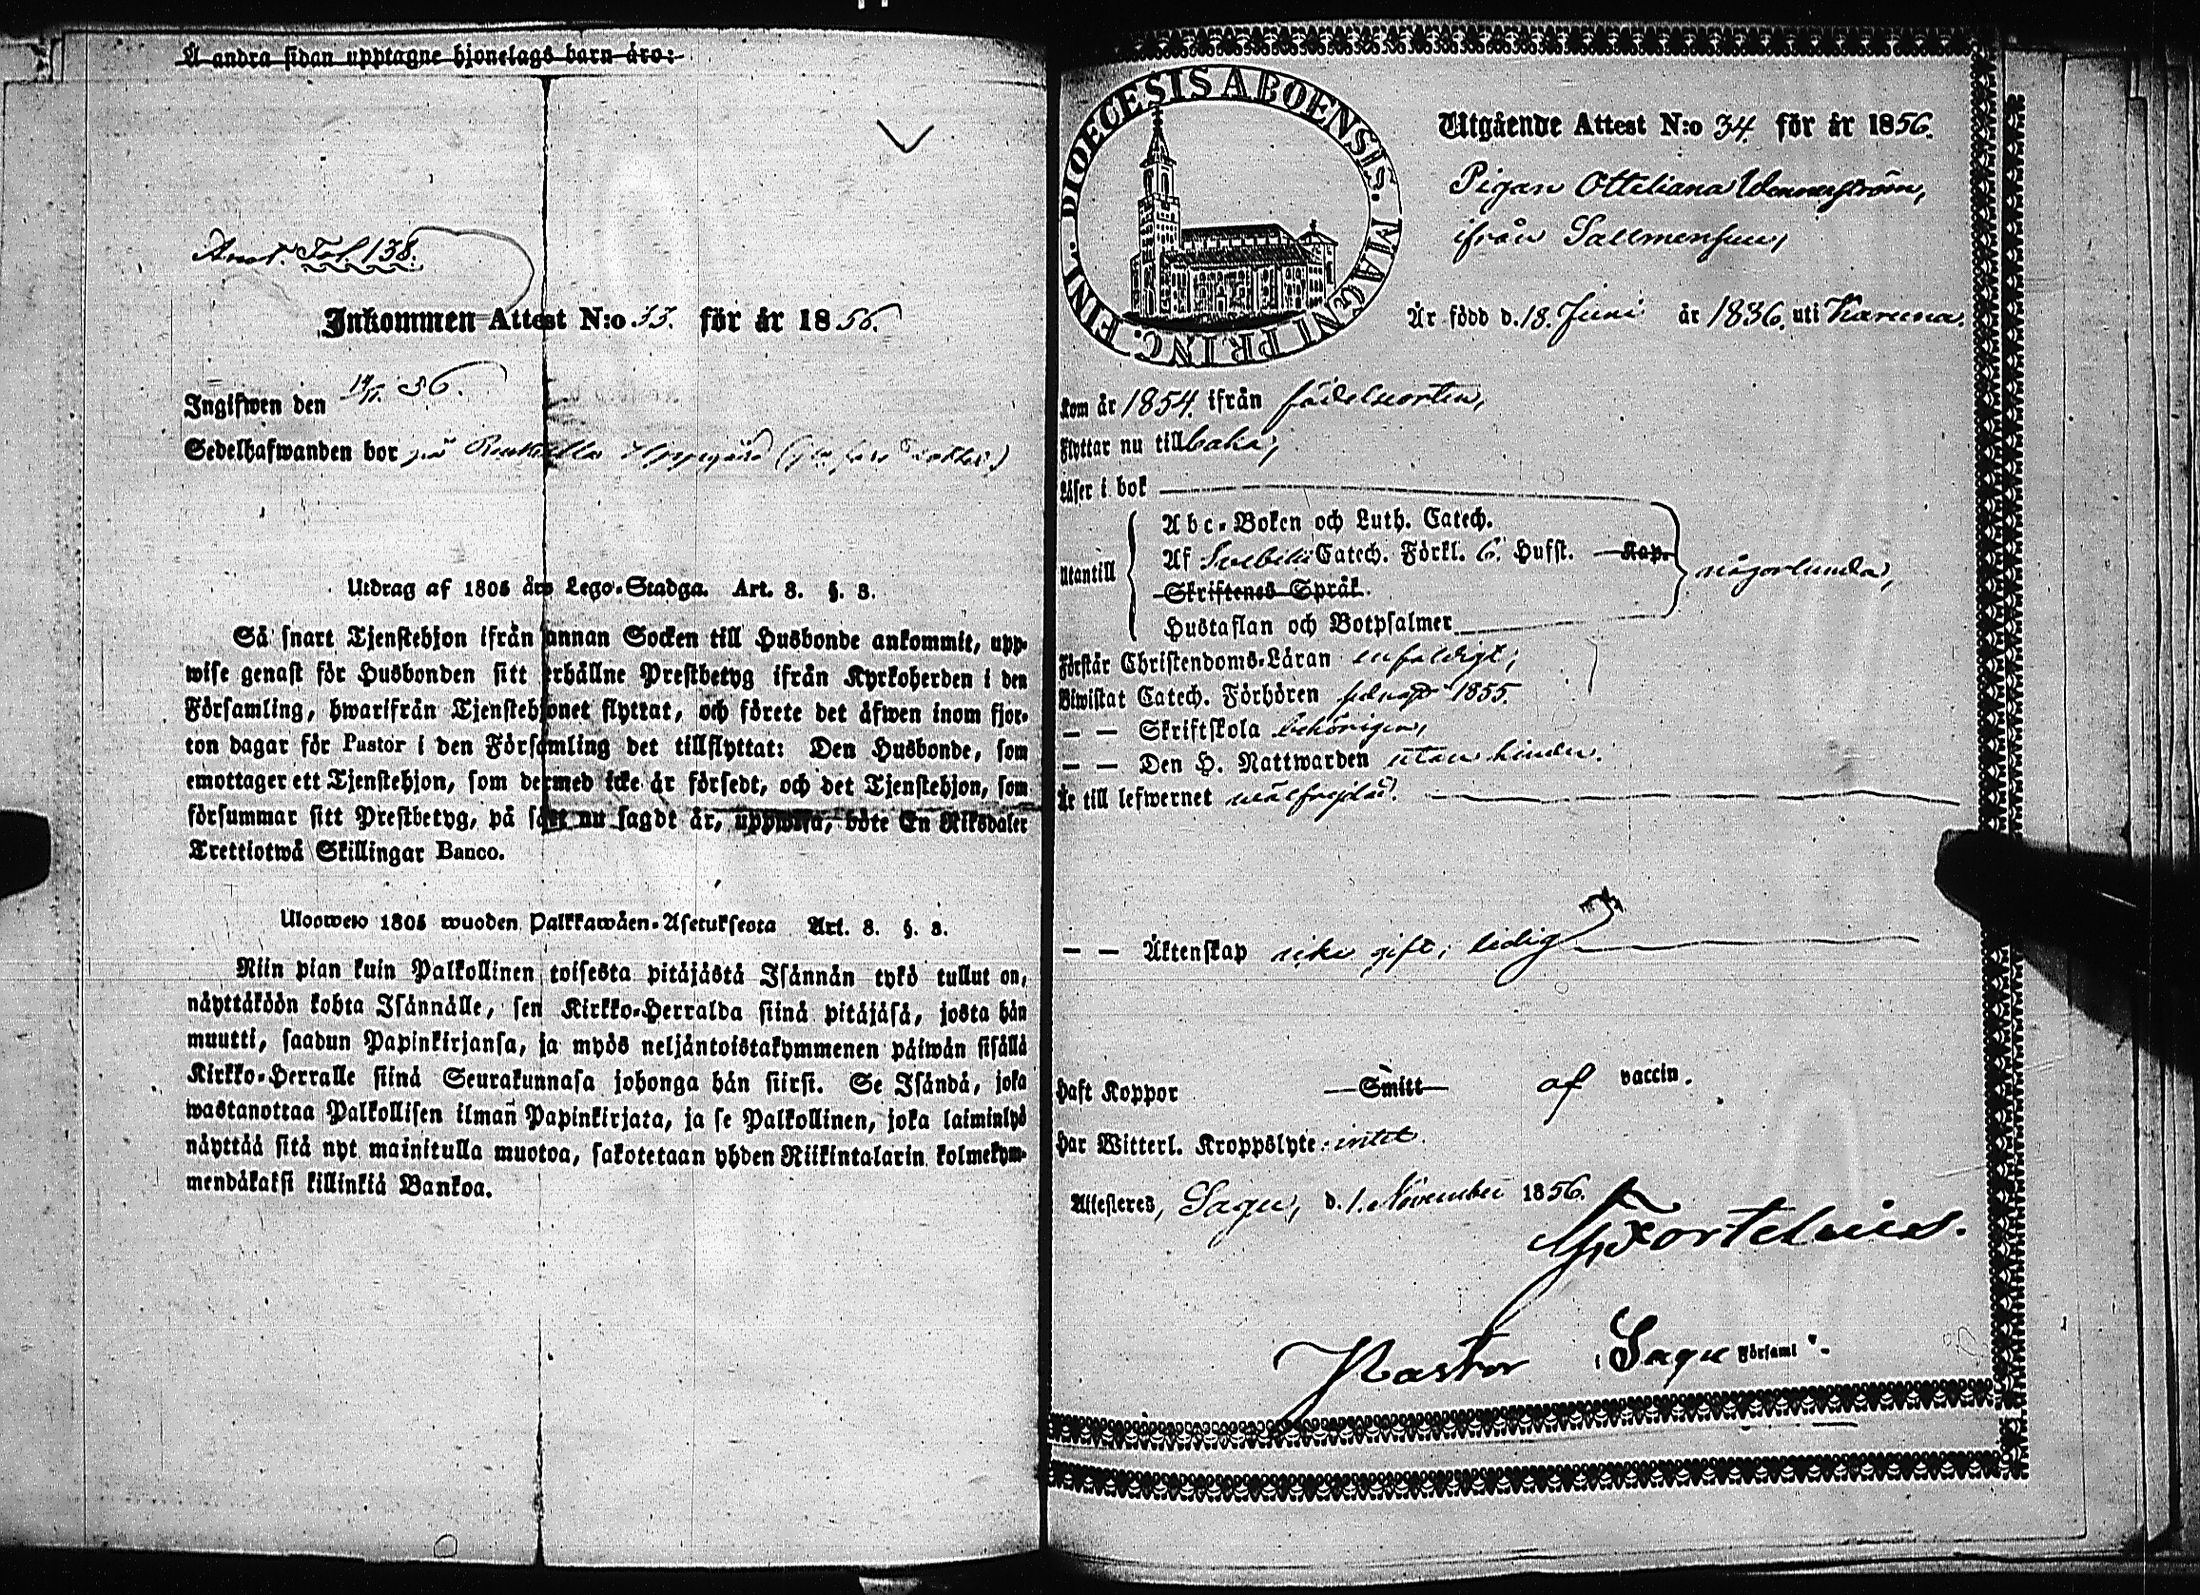 Å andra sidan upptagne hjonelags barn äro:
Anot. Fol. 138.
Inkommen Attest N:o 33. för år 1856.
Ingifwen den 14/11 56.
Sedelhafwanden bor på
Utdrag af 1805 års Lego-Stadga. Art. 8. §. 3.
Så snart Tjenstehjon ifrån annan Socken till Husbonde ankommit, upp-
wise genast för Husbonden sitt erhållne Prestbetyg ifrån Kyrkoherden i den
Församling, hwarifrån Tjenstehjonet flyttat, och förete det äfwen inom fjor-
ton dagar för Pastor i den Församling det tillflyttat: Den Husbonde, som
emottager ett Tjenstehjon, som dermed icke är försedt, och det Tjenstehjon, som
försummar sitt Prestbetyg, på sätt nu sagdt är, uppwisa, böte En Riksdaler
Trettiotwå Skillingar Banco.
Uloswето 1805 wuoden Palkkawäen-Asetuksesta Art. 8. §. 3.
Niin pian kuin Palkollinen toisesta pitäjästä Isännän tykö tullut on,
näyttäköön kohta Isännälle, sen Kirkko-Herralda siinä pitäjäsä, josta hän
muutti, saadun Papinkirjansa, ja myös neljäntoistakymmenen päiwän sisällä
Kirkko-Herralle siinä Seurakunnasa johonga hän siirsi. Se Isändä, joka
wastanottaa Palkollisen ilman Papinkirjata, ja se Palkollinen, joka laiminlyö
näyttää sitä nyt mainitulla muotoa, sakotetaan yhden Riikintalarin kolmekym-
mendäkaksi killinkiä Bankoa.
DIOECESIS ABOENSIS. MAGNI PRINC. FINL.
Utgående Attest N:o 34. för år 1856.
Pigan Ottiliana Wennerström,
ifrån
Är född d. 18. Juni år 1836. uti Karuna.
kom år 1854. ifrån födelseorten,
flyttar nu tillbaka,
Läser i bok
Utantill
Abc-Boken och Luth. Catech.
Af Svebilii Catech. Förkl. 6. Hufst. Kap.
Skriftenes Språk.
Hustaflan och Botpsalmer
någorlunda,
Förstår Christendoms-Läran enfaldigt,
Biwistat Catech. Förhören sednast 1855.
— — Skriftskola behörigen,
— — Den H. Nattwarden utan hinder.
Är till lefwernet wälfrejdad.
— — Äktenskap icke gift, ledig
Haft Koppor Smitt af vaccin.
Har Witterl. Kroppslyte: intet.
Attesteres, Sagu, d. 1. November 1856.
Fortelius.
Pastor i Sagu Församl.